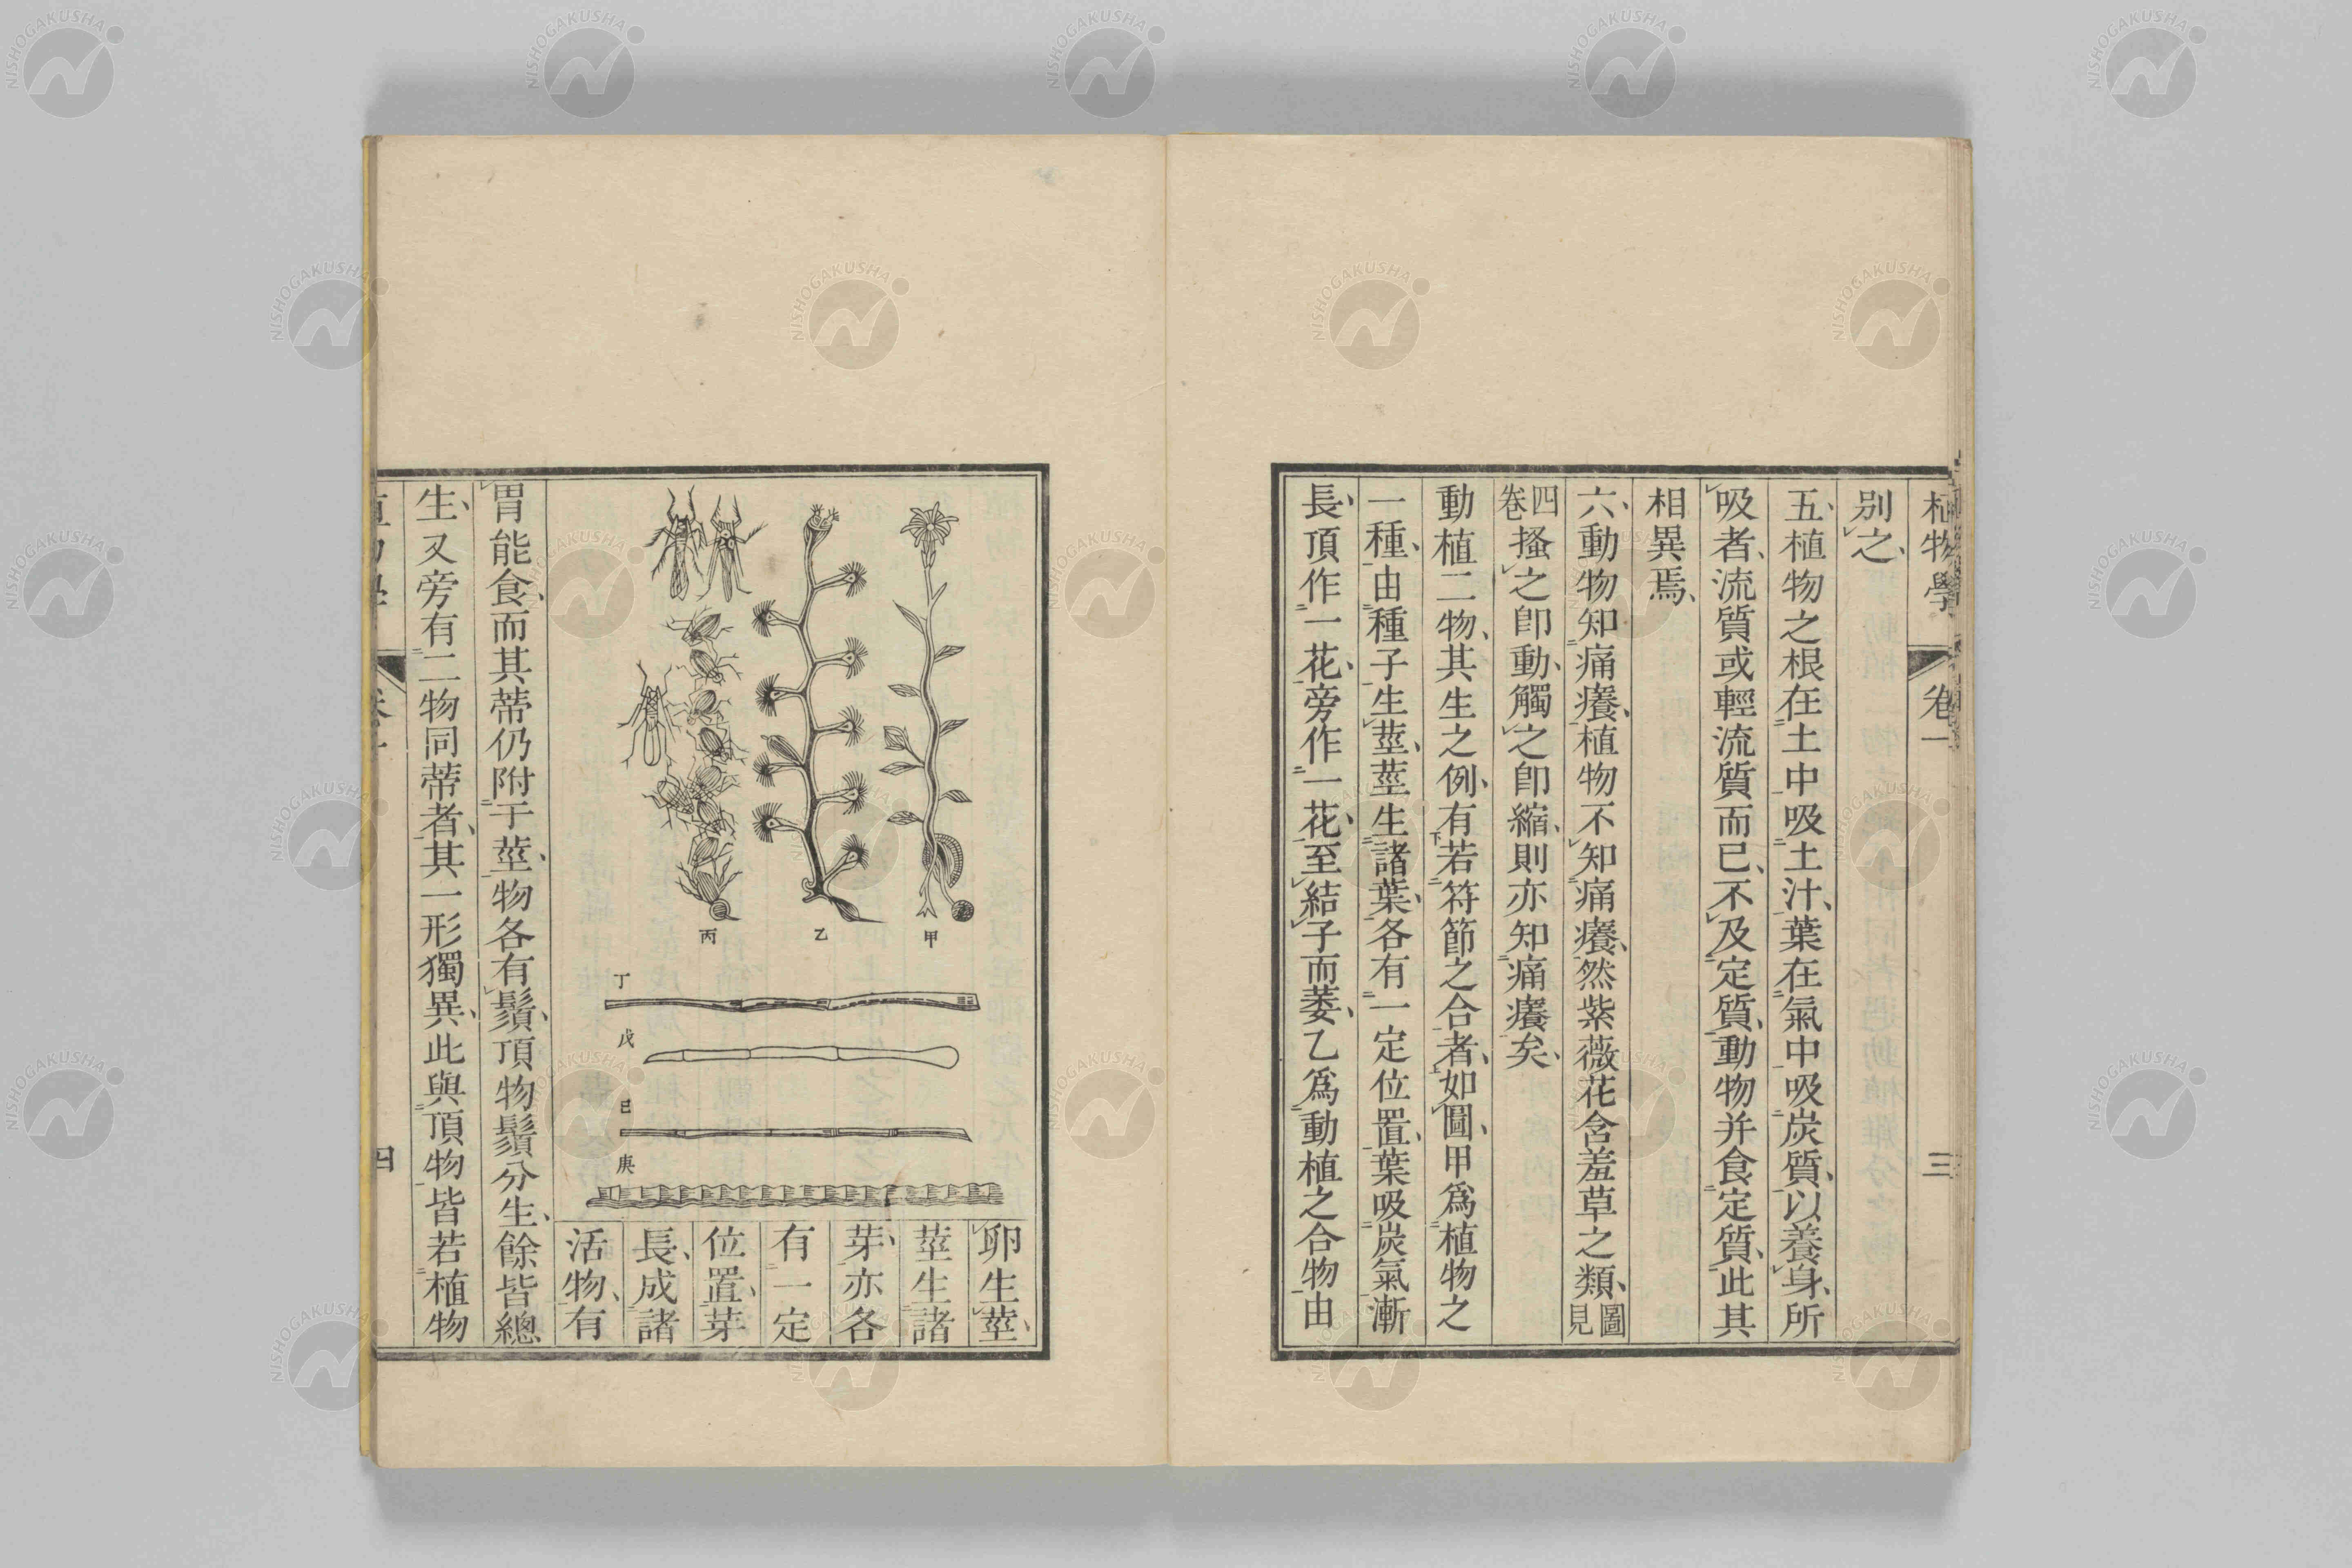 植物學 卷一 三
別之、
五、植物之根在土中吸土汁、葉在氣中吸炭質、以養身、所
吸者、流質或輕流質而已、不及定質、動物并食定質、此其
相異焉、
六、動物知痛癢、植物不知痛癢、然紫薇花含羞草之類、圖見
四卷搔之卽動、觸之卽縮、則亦知痛癢矣、
動植二物、其生之例、有下若符節之合者上、如圖、甲爲植物之
一種、由種子生莖、莖生諸葉、各有一定位置、葉吸炭氣漸
長、頂作一花、旁作一花、至結子而萎、乙爲動植之合物由
甲
乙
丙
丁
戊
己
庚
卵生莖、
莖生諸
芽、亦各
有一定
位置、芽
長、成諸
活物、有
胃能食、而其蒂仍附于莖、物各有鬚、頂物鬚分生、餘皆總
生、又旁有二物同蒂者、其一形獨異、此與頂物皆若植物
四
NISHOGAKUSHA